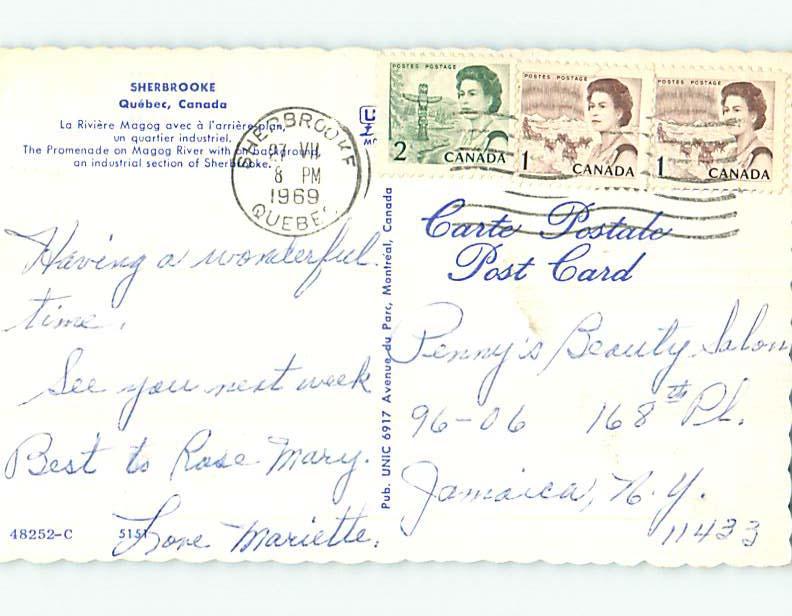 SHERBROOKE
Québec, Canada
La Rivière Magog avec à l'arrière-plan,
un quartier industriel.
The Promenade on Magog River with on background
an industrial section of Sherbrooke.
SHERBROOKE
VII
8 PM
1969
QUEBEC
POSTES POSTAGE
2 CANADA
POSTES POSTAGE
1 CANADA
POSTES POSTAGE
1 CANADA
Carte Postale
Post Card
Having a wonderful
time.
See you next week
Best to Rose Mary.
Love Mariette.
48252-C 5151
Pub. UNIC 6917 Avenue du Parc, Montréal, Canada
Penny's Beauty Salon
96-06 168th Pl.
Jamaica, N.Y.
11433